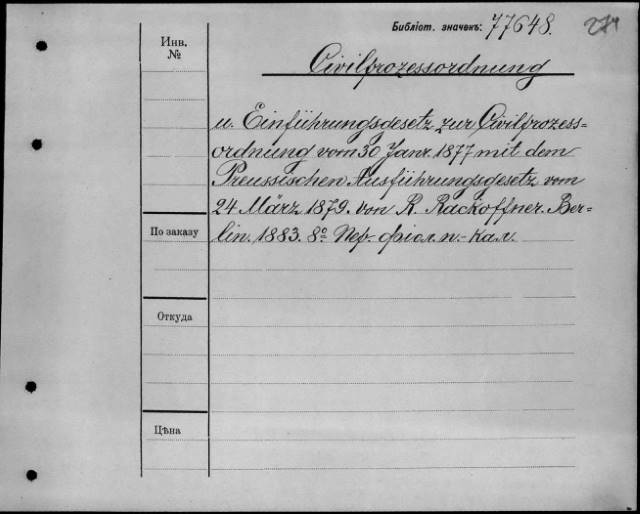 Библіот. значекъ: 77648.
Инв.
№
Civilprozessordnung
u. Einführungsgesetz zur Civilprozess=
ordnung vom 30 Janr. 1877 mit dem
Preussischen Ausführungsgesetz vom
24 März 1879. von R. Rackoffner. Ber=
lin. 1883. 8º Пер. фіол. п.-кал.
По заказу
Откуда
Цѣна